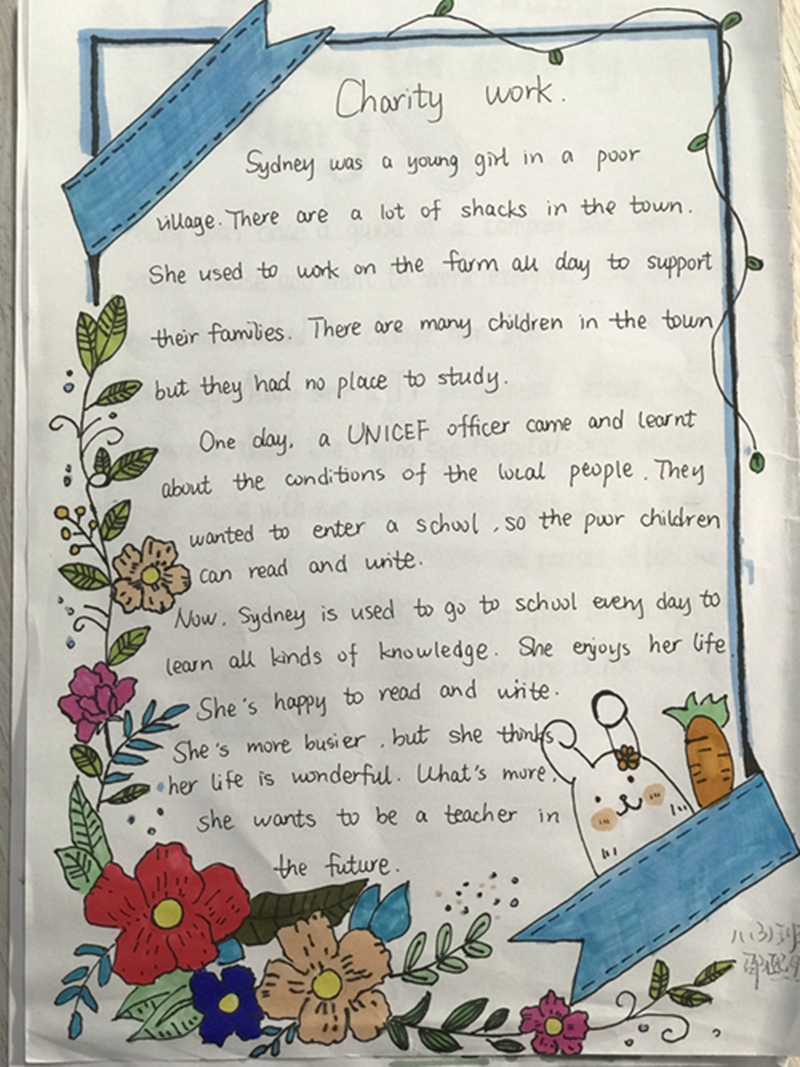 Charity work.
Sydney was a young girl in a poor
village. There are a lot of shacks in the town.
She used to work on the farm all day to support
their families. There are many children in the town
but they had no place to study.
One day, a UNICEF officer came and learnt
about the conditions of the local people. They
wanted to enter a school, so the poor children
can read and write.
Now, Sydney is used to go to school every day to
learn all kinds of knowledge. She enjoys her life.
She's happy to read and write.
She's more busier, but she thinks
her life is wonderful. What's more,
she wants to be a teacher in
the future.
八(3)班